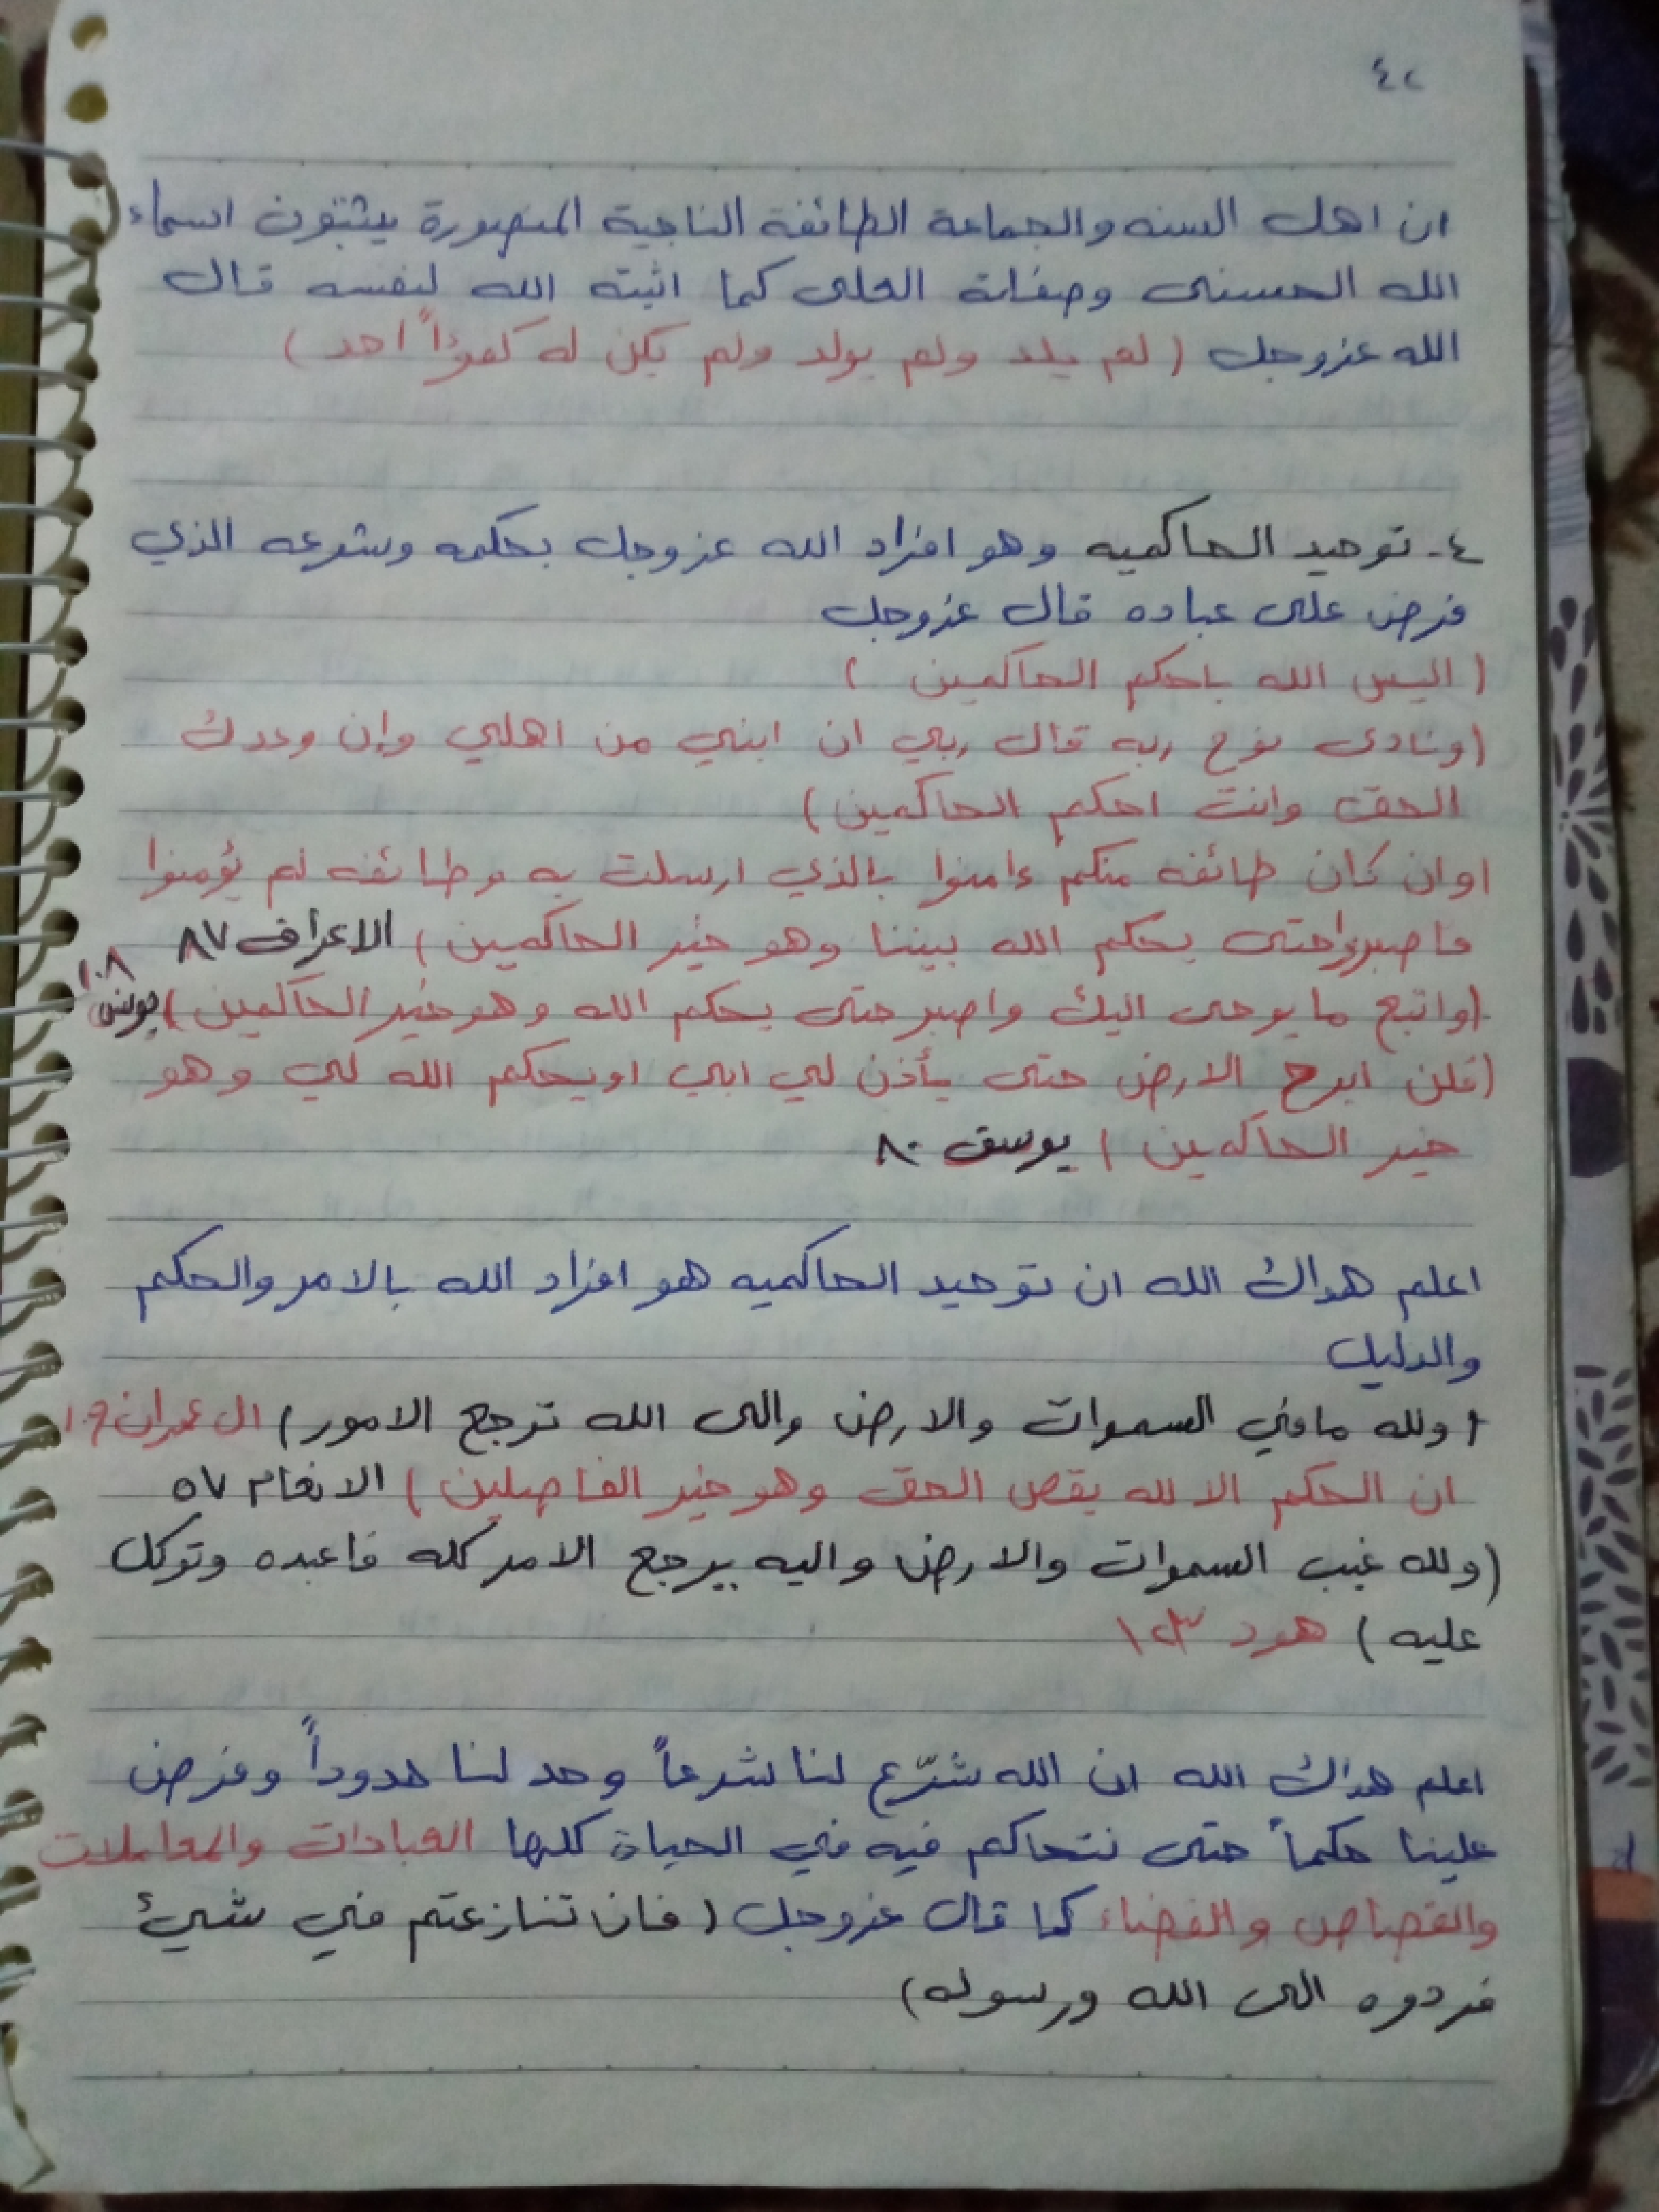 ٤٢
ان اهل السنه والجماعة الطائفة الناجية المنصورة يثبتون اسماء
الله الحسنى وصفاته العلى كما اثبته الله لنفسه قال
الله عزوجل (لم يلد ولم يولد ولم يكن له كفؤاً احد)
٤- توحيد الحاكميه وهو افراد الله عزوجل بحكمه وشرعه الذي
فرض على عباده قال عزوجل
(اليس الله باحكم الحاكمين)
(ونادى نوح ربه قال ربي ان ابني من اهلي وإن وعدك
الحق وانت احكم الحاكمين)
(وان كان طائفه منكم ءامنوا بالذي ارسلت به وطائفه لم يؤمنوا
فاصبروا حتى يحكم الله بيننا وهو خير الحاكمين) الاعراف ٨٧
(واتبع ما يوحى اليك واصبر حتى يحكم الله وهو خير الحاكمين) يونس ١٠٨
(فلن ابرح الارض حتى يأذن لي ابي او يحكم الله لي وهو
خير الحاكمين) يوسف ٨٠
اعلم هداك الله ان توحيد الحاكميه هو افراد الله بالامر والحكم
والدليل
(ولله مافي السموات والارض والى الله ترجع الامور) ال عمران ١٠٩
ان الحكم الا لله يقص الحق وهو خير الفاصلين) الانعام ٥٧
(ولله غيب السموات والارض واليه يرجع الامر كله فاعبده وتوكل
عليه) هود ١٢٣
اعلم هداك الله ان الله شرّع لنا شرعاً وحد لنا حدوداً وفرض
علينا حكماً حتى نتحاكم فيه في الحياة كلها العبادات والمعاملات
والقصاص والقضاء كما قال عزوجل (فان تنازعتم في شيئ
فردوه الى الله ورسوله)